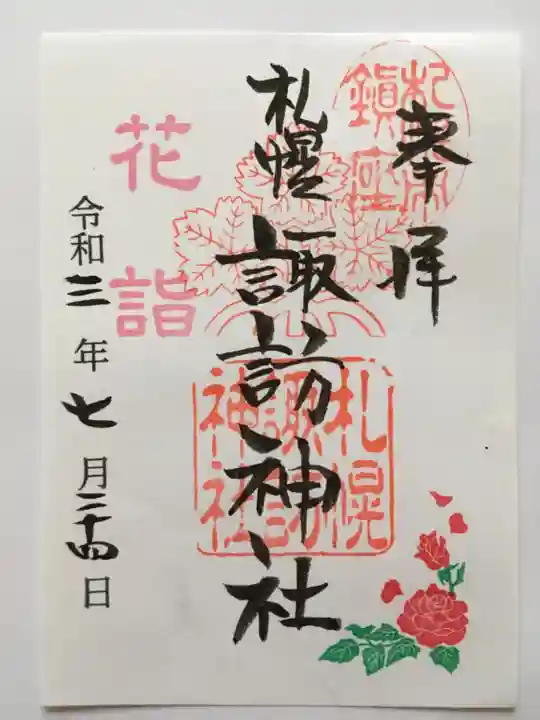 奉拝
札幌鎮座
札幌諏訪神社
札幌諏訪神社
花詣
令和三年七月二十四日